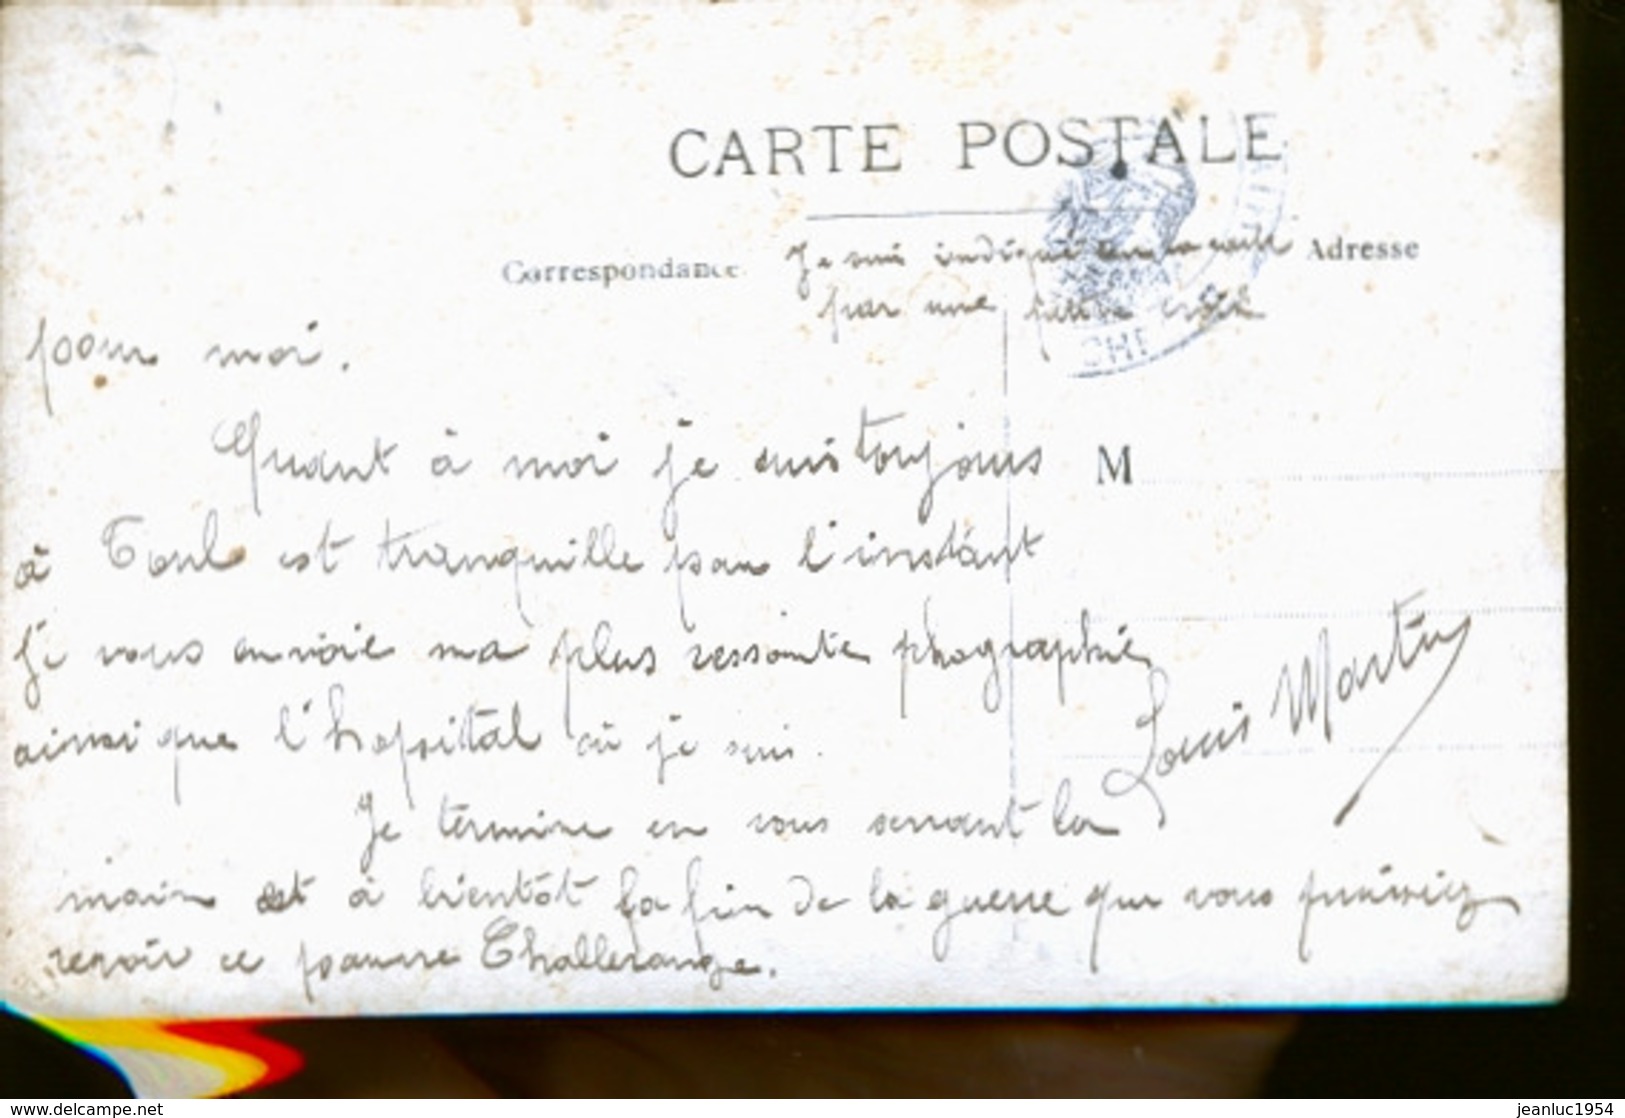 CARTE POSTALE
Correspondance Adresse
Je suis indiqué
par une petite croix
CHE
pour moi.
Quant à moi je suis toujours
M
à Toul est tranquille pour l'instant
Je vous envoie ma plus ressainte phographie
ainsi que l'hopsital où je suis.
Louis Martin
Je termine en vous serrant la
main et à bientôt la fin de la guerre que vous puissiez
revoir ce pauvre Challerange.
www.delcampe.net
jeanluc1954